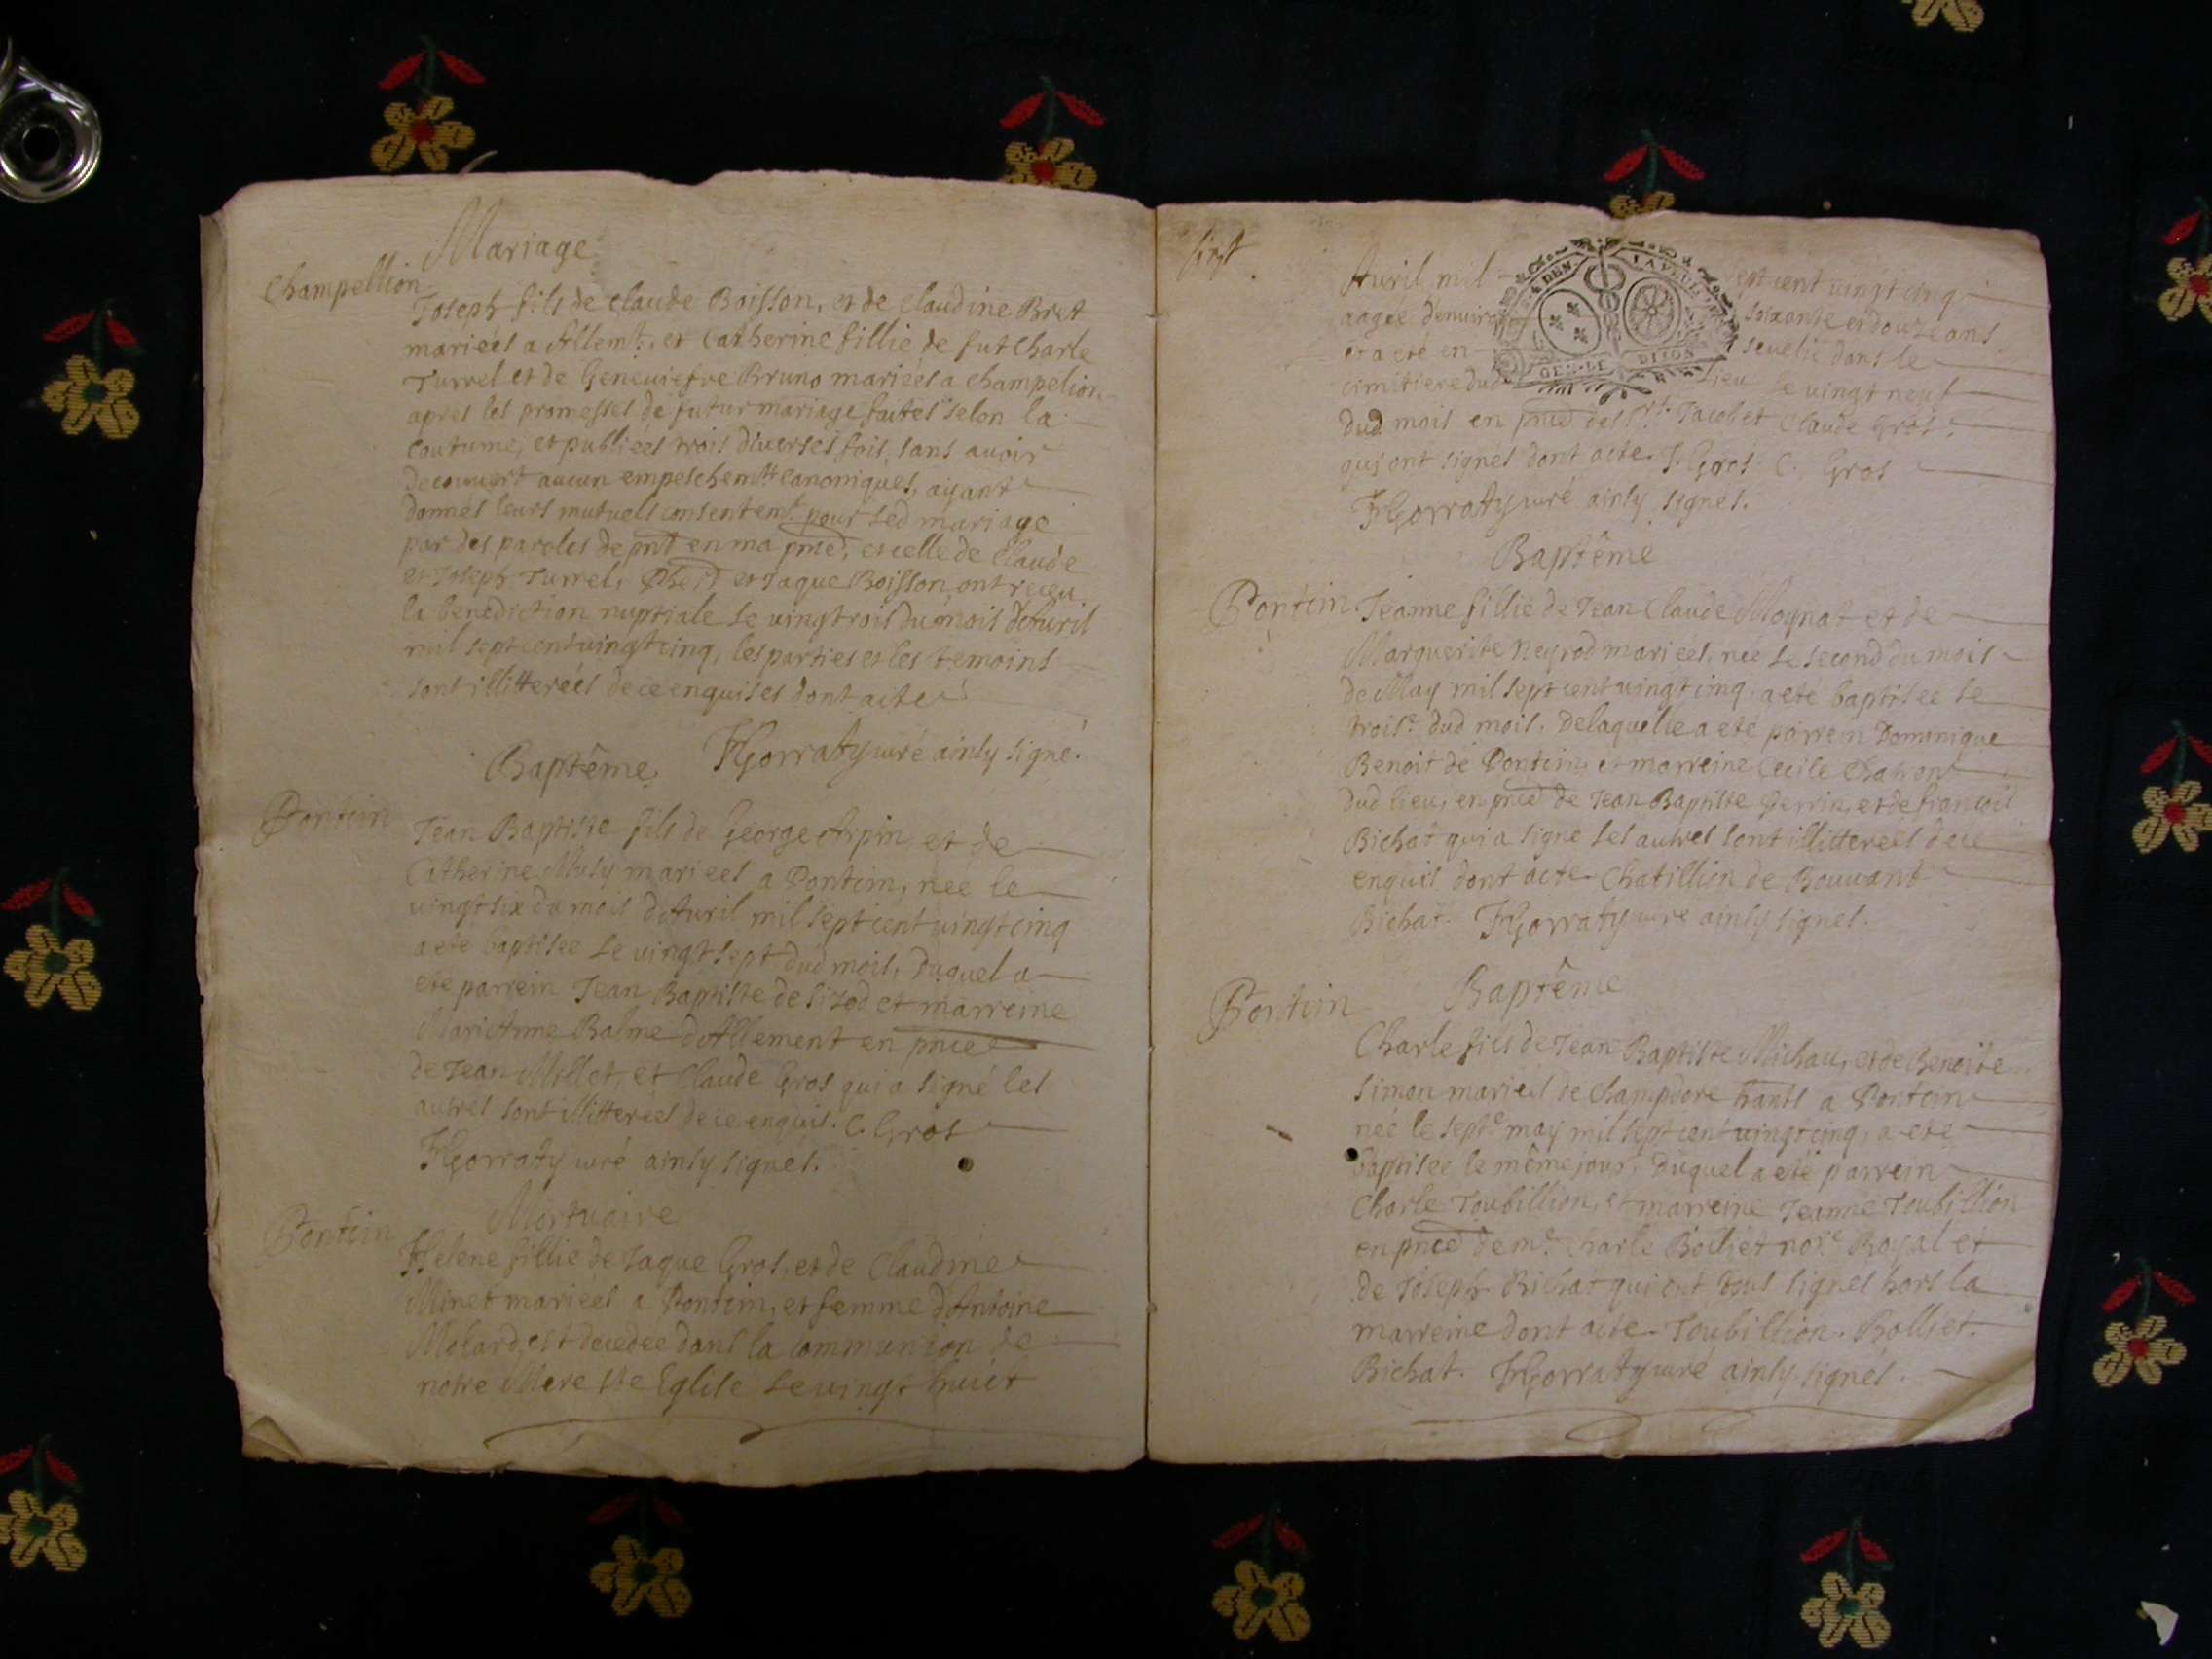 Mariage
Champellion
Joseph fils de Claude Boisson, et de Claudine Bret
mariéés a Allemt. et Catherine fillie de fut Charle
Turrel et de Geneuiefve Bruno mariéés a Champelion
apres les promesses de futur mariage faites selon la
Coutume, et publiéés trois diuerses fois, sans auoir
decouuert aucun empeschemtt canoniques, ayant
donnés leurs mutuels consentemt. pour led mariage
par des paroles de pnt en ma pnce, et celle de Claude
et Joseph Turrel, et Jaque Boisson, ont receu
la benediction nuptiale le uingtrois du mois d'Auril
mil sept cent uingt cinq, les parties et les temoins
sont illitteréés de ce enquises dont acte
Baptême, JHGorraty curé ainsy signé.
Pontein
Jean Baptiste fils de George Arpin et de
Catherine Musy mariéés a Pontein, née le
uingt six du mois d'Auril mil sept cent uingt cinq
a eté baptisée le uingt sept dud mois, duquel a
eté parrein Jean Baptiste de Sizod et marreine
Marie Anne Balme d'Allement en pnce
de Jean Millet, et Claude Gros qui a signé les
autres sont illitterées de ce enquis. C. Gros
JHGorraty curé ainsy signés.
Mortuaire
Pontein
Helene fillie de Jaque Gros, et de Claudine
Minet mariéés a Pontein, et femme d'Antoine
Molard, est decedée dans la communion de
notre Mere Ste Eglise le uingt huiét
Auril mil sept cent uingt cinq
aagée d'enuiron soixante et douze ans
et a eté enseuelie dans le
cimitiere dud Lieu le uingt neuf
dud mois en pnce des Srs. Jacob et Claude Gros,
qui ont signés dont acte. J. Gros. C. Gros
JHGorraty curé ainsy signés.
GEN. LE DIJON
Baptême
Pontein
Jeanne fillie de Jean Claude Moynat et de
Marguerite Neyrod mariéés, née le second du mois
de May mil sept cent uingt cinq, a eté baptisée le
trois.e dud mois, de laquelle a eté parrein Dominique
Benoit de Pontein, et marreine Cecile Chatron
dud lieu, en pnce de Jean Baptiste Perrin, et de françois
Bichat qui a signé les autres sont illitterées de ce
enquis dont acte. Chatillion de Bouuand
Bichat. JHGorraty curé ainsy signés.
Baptême
Pontein
Charle fils de Jean Baptiste Michau, et de Benoite
Simon mariéés de Champdore hants a Pontein
née le sept.e may mil sept cent uingt cinq, a eté
baptisée le même jour, duquel a eté parrein
Charle Toubillion, et marreine Jeanne Toubillion
en pnce de me. Charle Bolliet nore. Royal et
de Joseph Bichat qui ont tous signés hors la
marreine dont acte. Toubillion. Bolliet.
Bichat. JHGorraty curé ainsy signés.